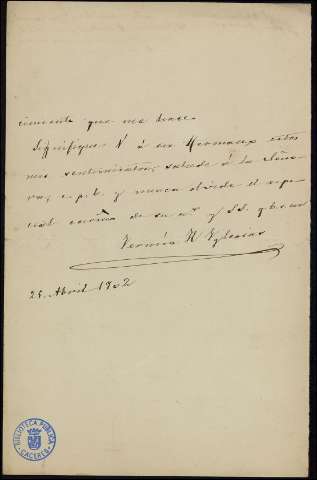 cimiento que me hace.
Signifique V. á su Hermano estos
mis sentimientos, salude á la Seño-
ra, c. p. b. y nunca olvide el espe-
cial cariño de su a.º y S.S. q. b. s. m.
Fermín H. Yglesias
25. Abril 1882
BIBLIOTECA PÚBLICA
CÁCERES